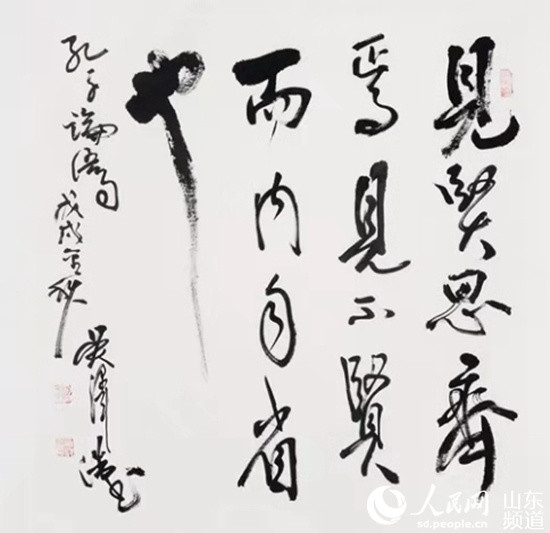 見賢思齊
焉見不賢
而内自省
也
孔子論語句 戊戌金秋
吴澤浩
人民网 山东
频道
sd.people.cn